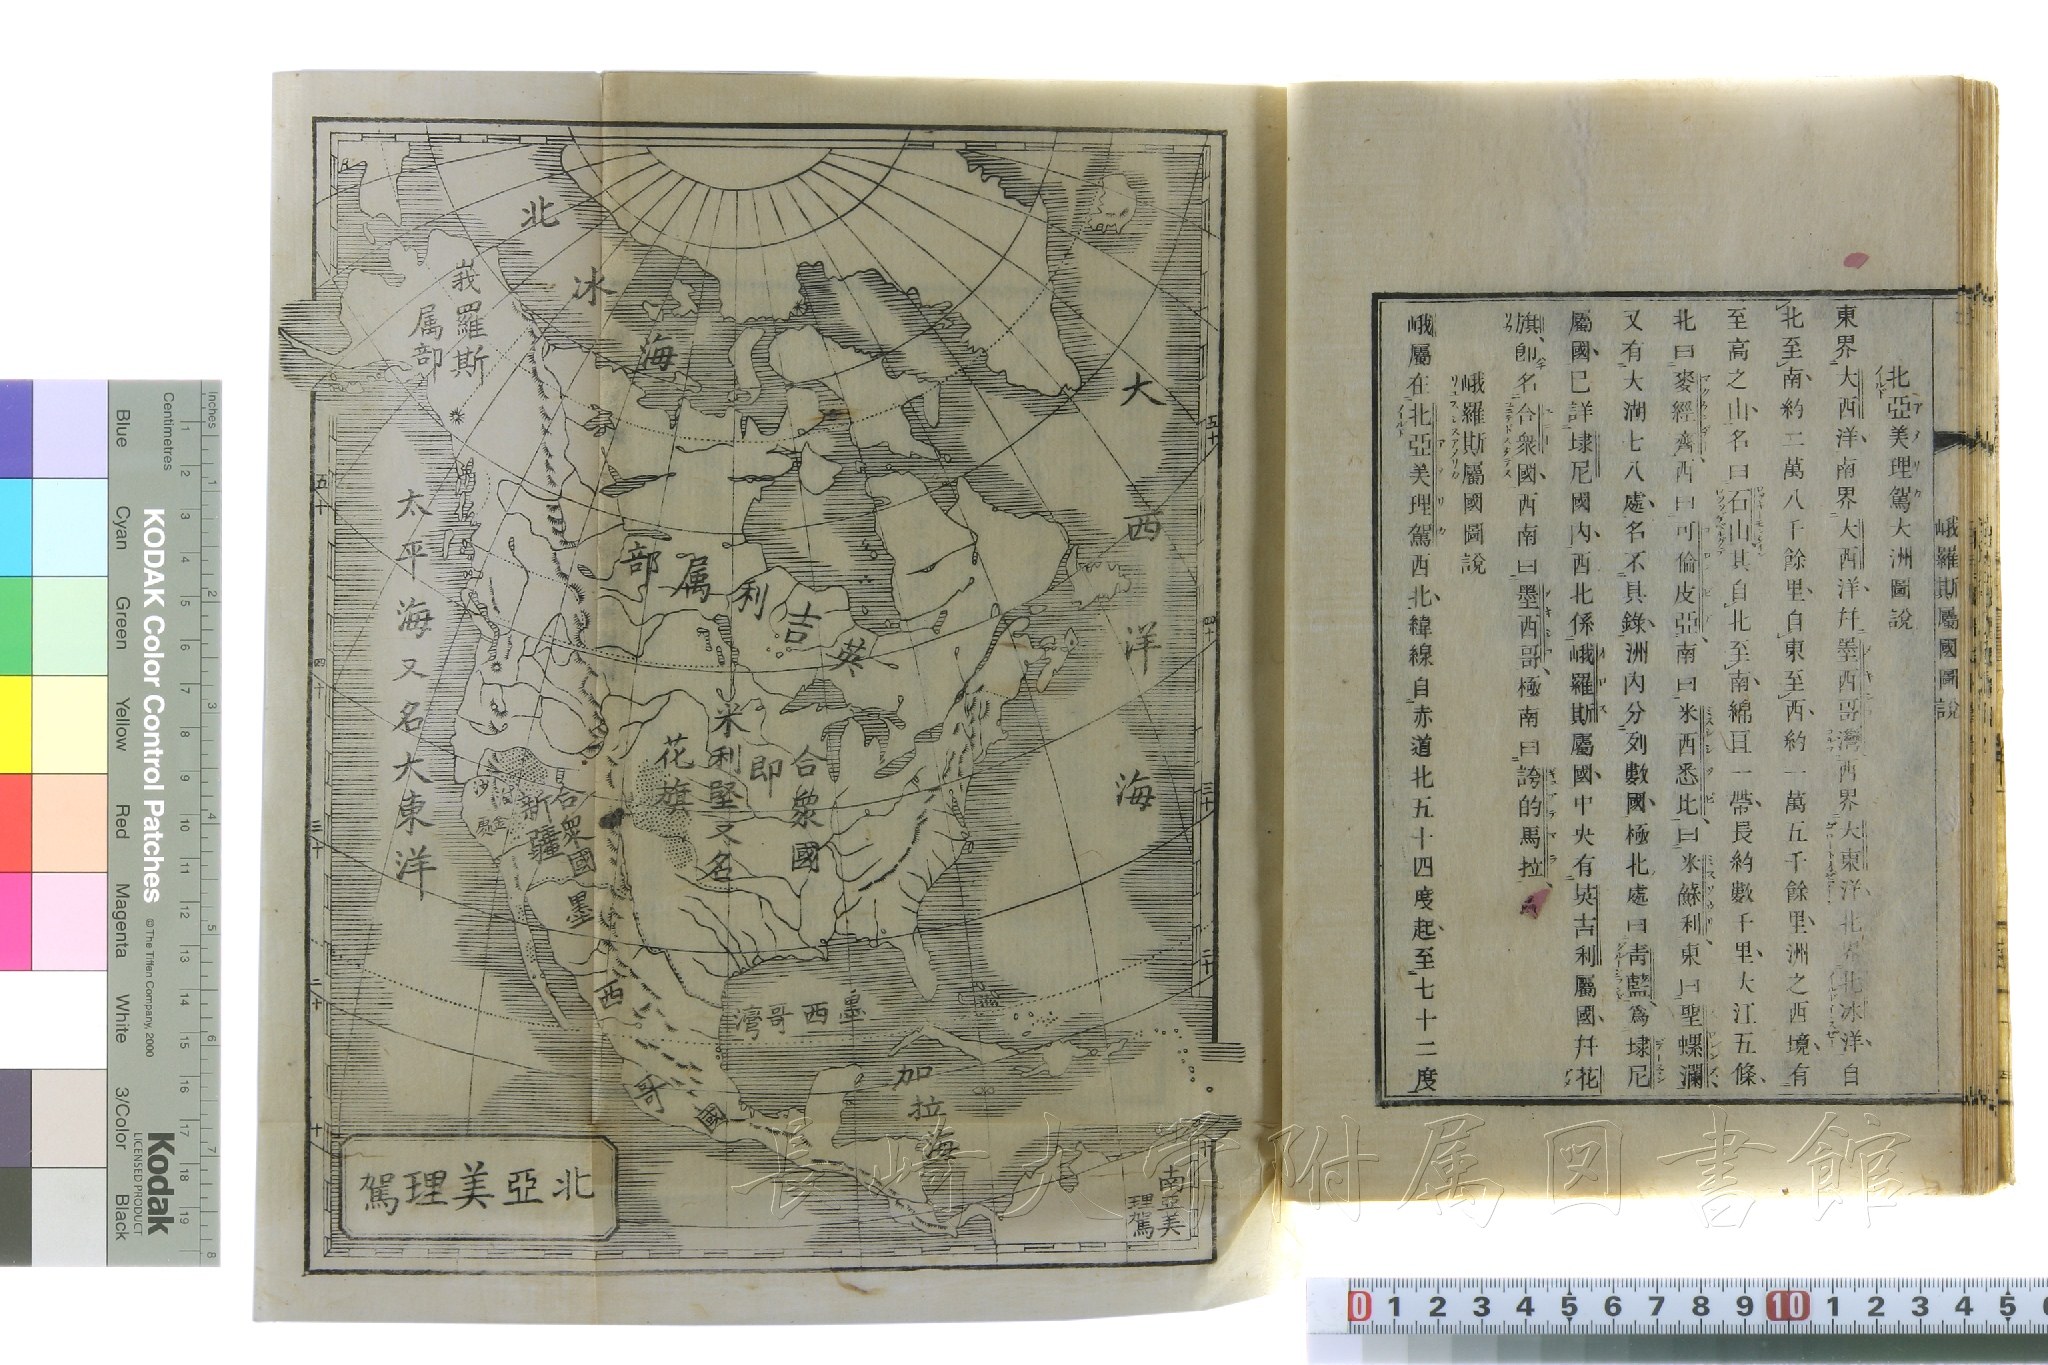 峨羅斯屬國圖說
北亞美理駕大洲圖說
東界大西洋南界大西洋幷墨西哥灣西界大東洋北界北冰洋自
北至南約二萬八千餘里自東至西約一萬五千餘里洲之西境有
至高之山名曰石山其自北至南綿亘一帶長約數千里大江五條
北曰麥經齊西曰可倫皮亞南曰米西悉比曰米蘇利東曰聖螺瀾
又有大湖七八處名不具錄洲內分列數國極北處曰靑藍爲埭尼
屬國已詳埭尼國內西北係峨羅斯屬國中央有英吉利屬國幷花
旗卽名合衆國西南曰墨西哥極南曰誇的馬拉
峨羅斯屬國圖說
峨屬在北亞美理駕西北緯線自赤道北五十四度起至七十二度
北冰海
峩羅斯
属部
大西洋海
太平海又名大東洋
英吉利属部
合衆國
即
米利堅又名
花旗
合衆國
新疆
墨西哥國
墨西哥灣
加拉海
南亞美
理駕
北亞美理駕
五十
四十
三十
二十
十
五十
四十
三十
二十
長崎大学附属図書館
KODAK Color Control Patches
© The Tiffen Company, 2000
Kodak
LICENSED PRODUCT
Inches
Centimetres
Blue
Cyan
Green
Yellow
Red
Magenta
White
3/Color
Black
1 2 3 4 5 6 7 8 9 10 11 12 13 14 15 16 17 18 19
1 2 3 4 5 6 7 8
0 1 2 3 4 5 6 7 8 9 10 1 2 3 4 5 6